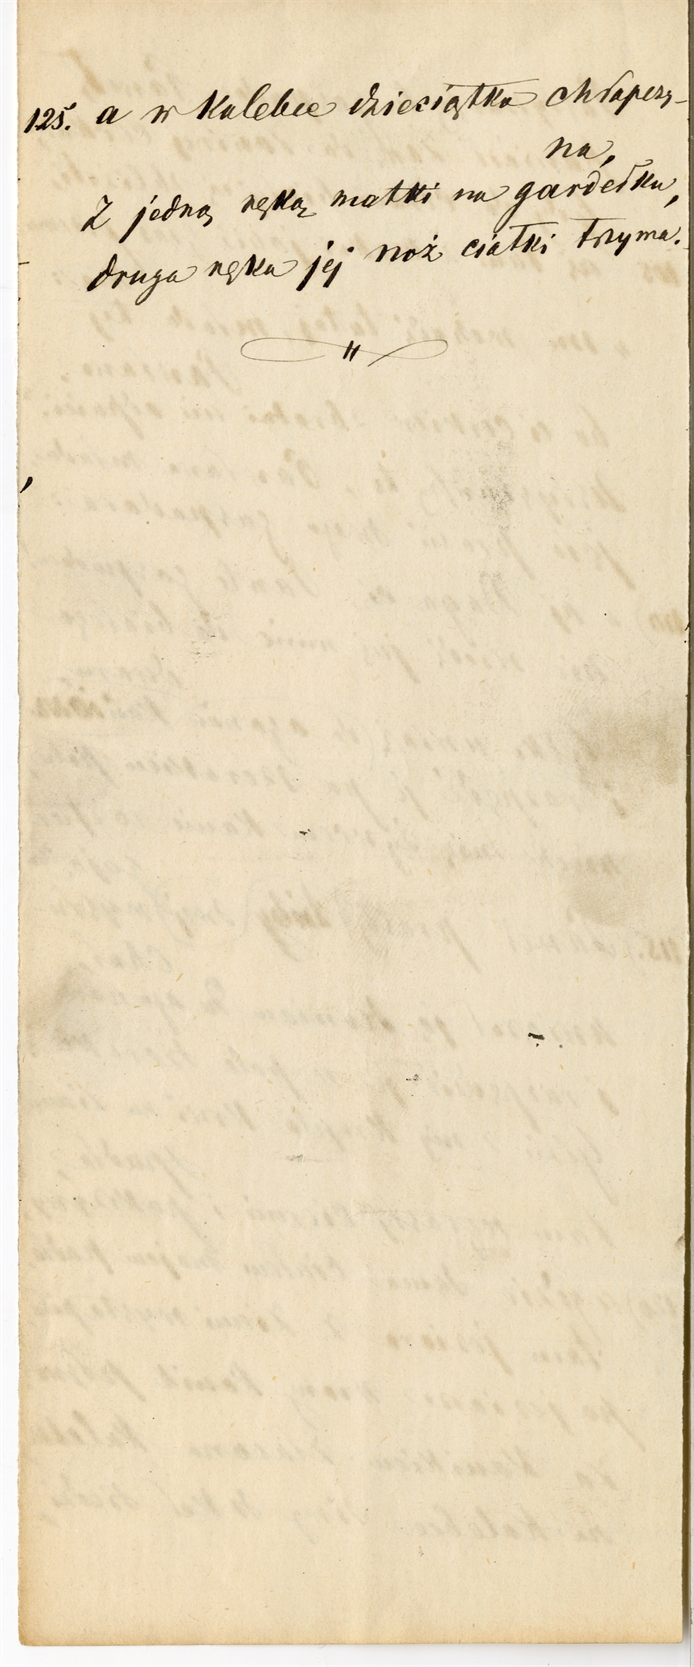 125. a w kalebce dzieciątko chłapczy-
na,
Z jedną ręką matki na gardełku,
druga ręka jej noż ciałki trzyma.